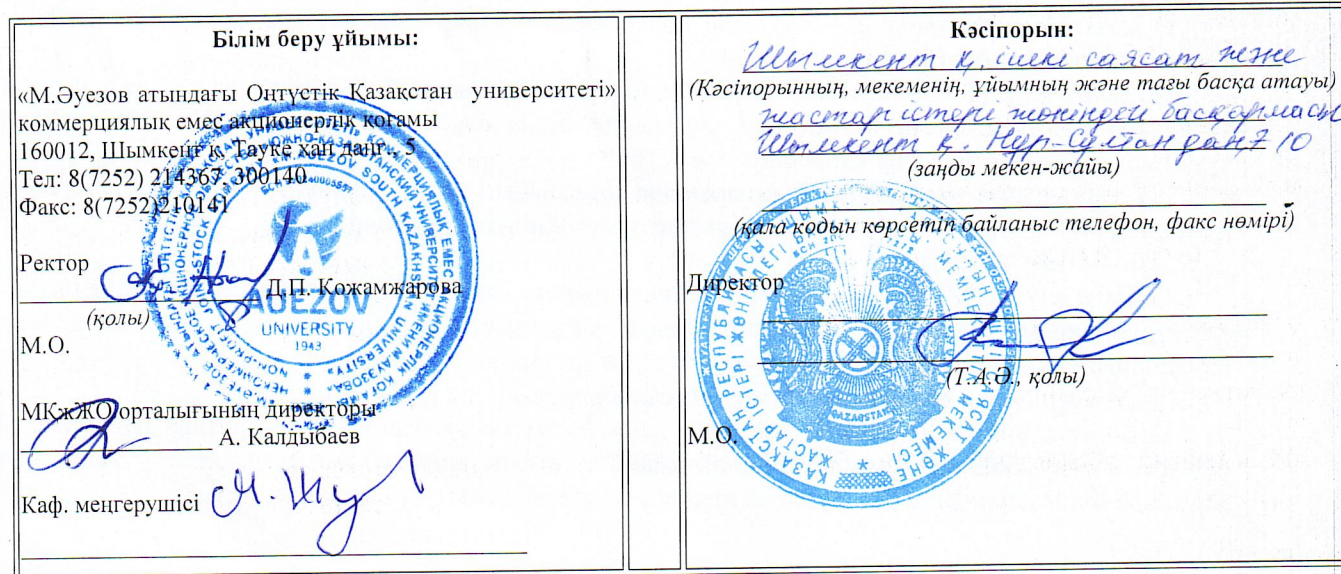 Білім беру ұйымы:
«М.Әуезов атындағы Оңтүстік Қазақстан университеті»
коммерциялық емес акционерлік қоғамы
160012, Шымкент қ, Тауке хан даңғ., 5
Тел: 8(7252) 214367, 300140
Факс: 8(7252)210141
Ректор
Д.П. Кожамжарова
(қолы)
М.О.
AUEZOV
UNIVERSITY
1943
МҚжЖО орталығының директоры
А. Калдыбаев
Каф. меңгерушісі
Кәсіпорын:
Шымкент қ. ішкі саясат және
(Кәсіпорынның, мекеменің, ұйымның және тағы басқа атауы)
жастар істері жөніндегі басқармасы
Шымкент қ. Нұр-Сұлтан даң, 10
(заңды мекен-жайы)
(қала кодын көрсетіп байланыс телефон, факс нөмірі)
Директор
(Т.А.Ә., қолы)
М.О.
QAZAQSTAN